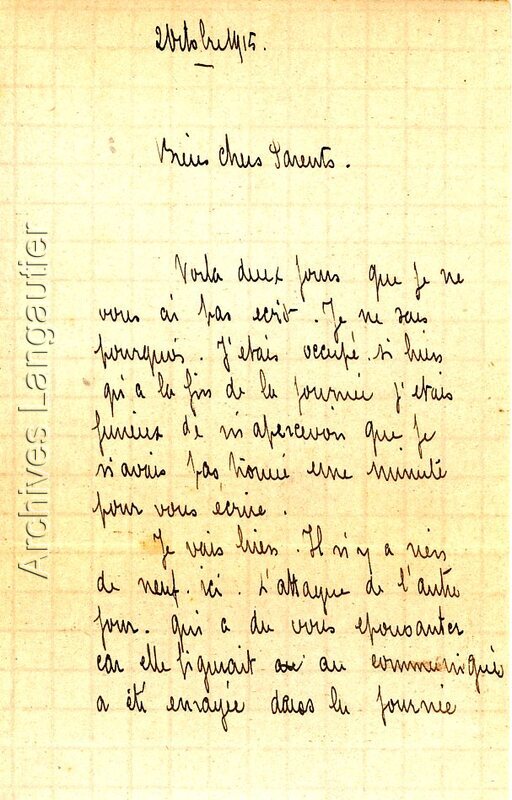 2 Octobre 1915.
Biens chers Parents.
Voila deux jours que je ne
vous ai pas ecrit. Je ne sais
pourquoi. J'etais occupé si bien
qu'a la fin de la journée j'etais
furieux de m'apercevoir que je
n'avais pas trouvé une minute
pour vous écrire.
Je vais bien. Il n'y a rien
de neuf. ici. L'attaque de l'autre
jour. qui a du vous epouvanter
car elle figurait au communiqué
a été enrayée dans la journée
Archives Langautier